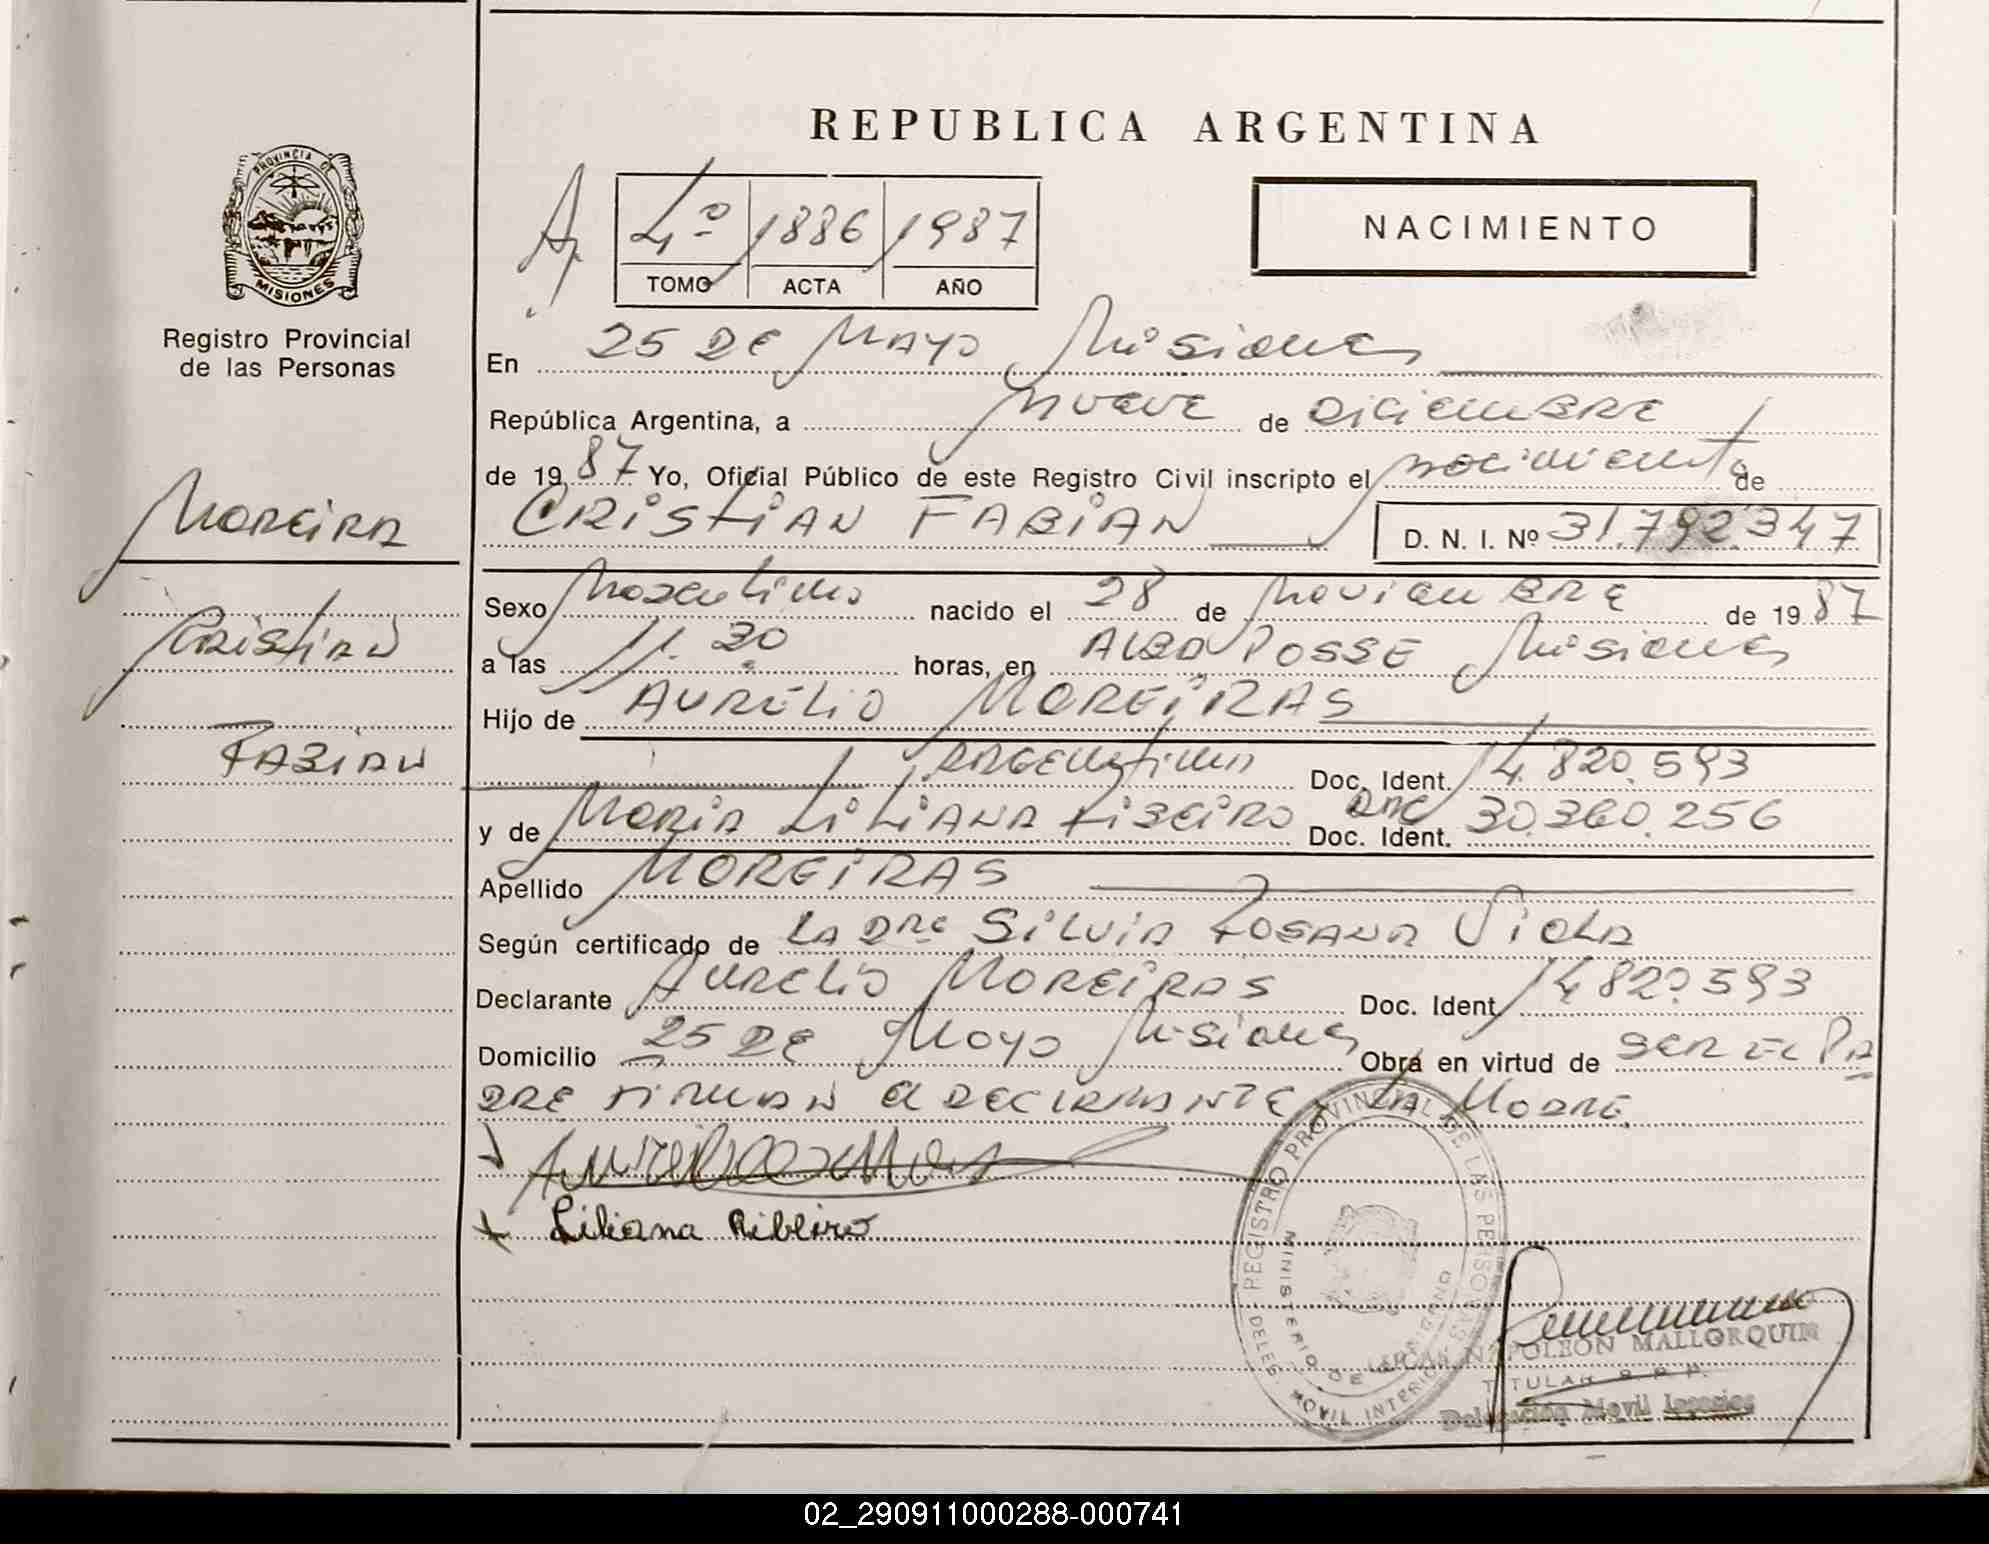 REPUBLICA ARGENTINA
PROVINCIA DE
MISIONES
Registro Provincial
de las Personas
4º 1886 1987
TOMO ACTA AÑO
NACIMIENTO
En 25 DE MAYO Misiones
República Argentina, a nueve de DICIEMBRE
de 1987 Yo, Oficial Público de este Registro Civil inscripto el nacimiento de
CRISTIAN FABIAN D. N. I. Nº 31.792.347
MOREIRA
CRISTIAN
FABIAN
Sexo Masculino nacido el 28 de Noviembre de 1987
a las 11.30 horas, en ALBA POSSE Misiones
Hijo de AURELIO MOREIRAS
ARGENTINA Doc. Ident. 14.820.593
y de MARIA LILIANA RIBEIRO DNI Doc. Ident. 30.360.256
Apellido MOREIRAS
Según certificado de LA DRA SILVIA ROSANA VIOLA
Declarante AURELIO MOREIRAS Doc. Ident. 14820593
Domicilio 25 DE MAYO Misiones Obra en virtud de SER EL PA
DRE FIRMAN EL DECLARANTE LA MADRE.
Liliana Ribeiro
REGISTRO PROVINCIAL DE LAS PERSONAS
MINISTERIO DE GOBIERNO
DELEG. MOVIL INTERIOR
NAPOLEON MALLORQUIN
TITULAR R. P. P.
Delegación Movil Interior
02_290911000288-000741